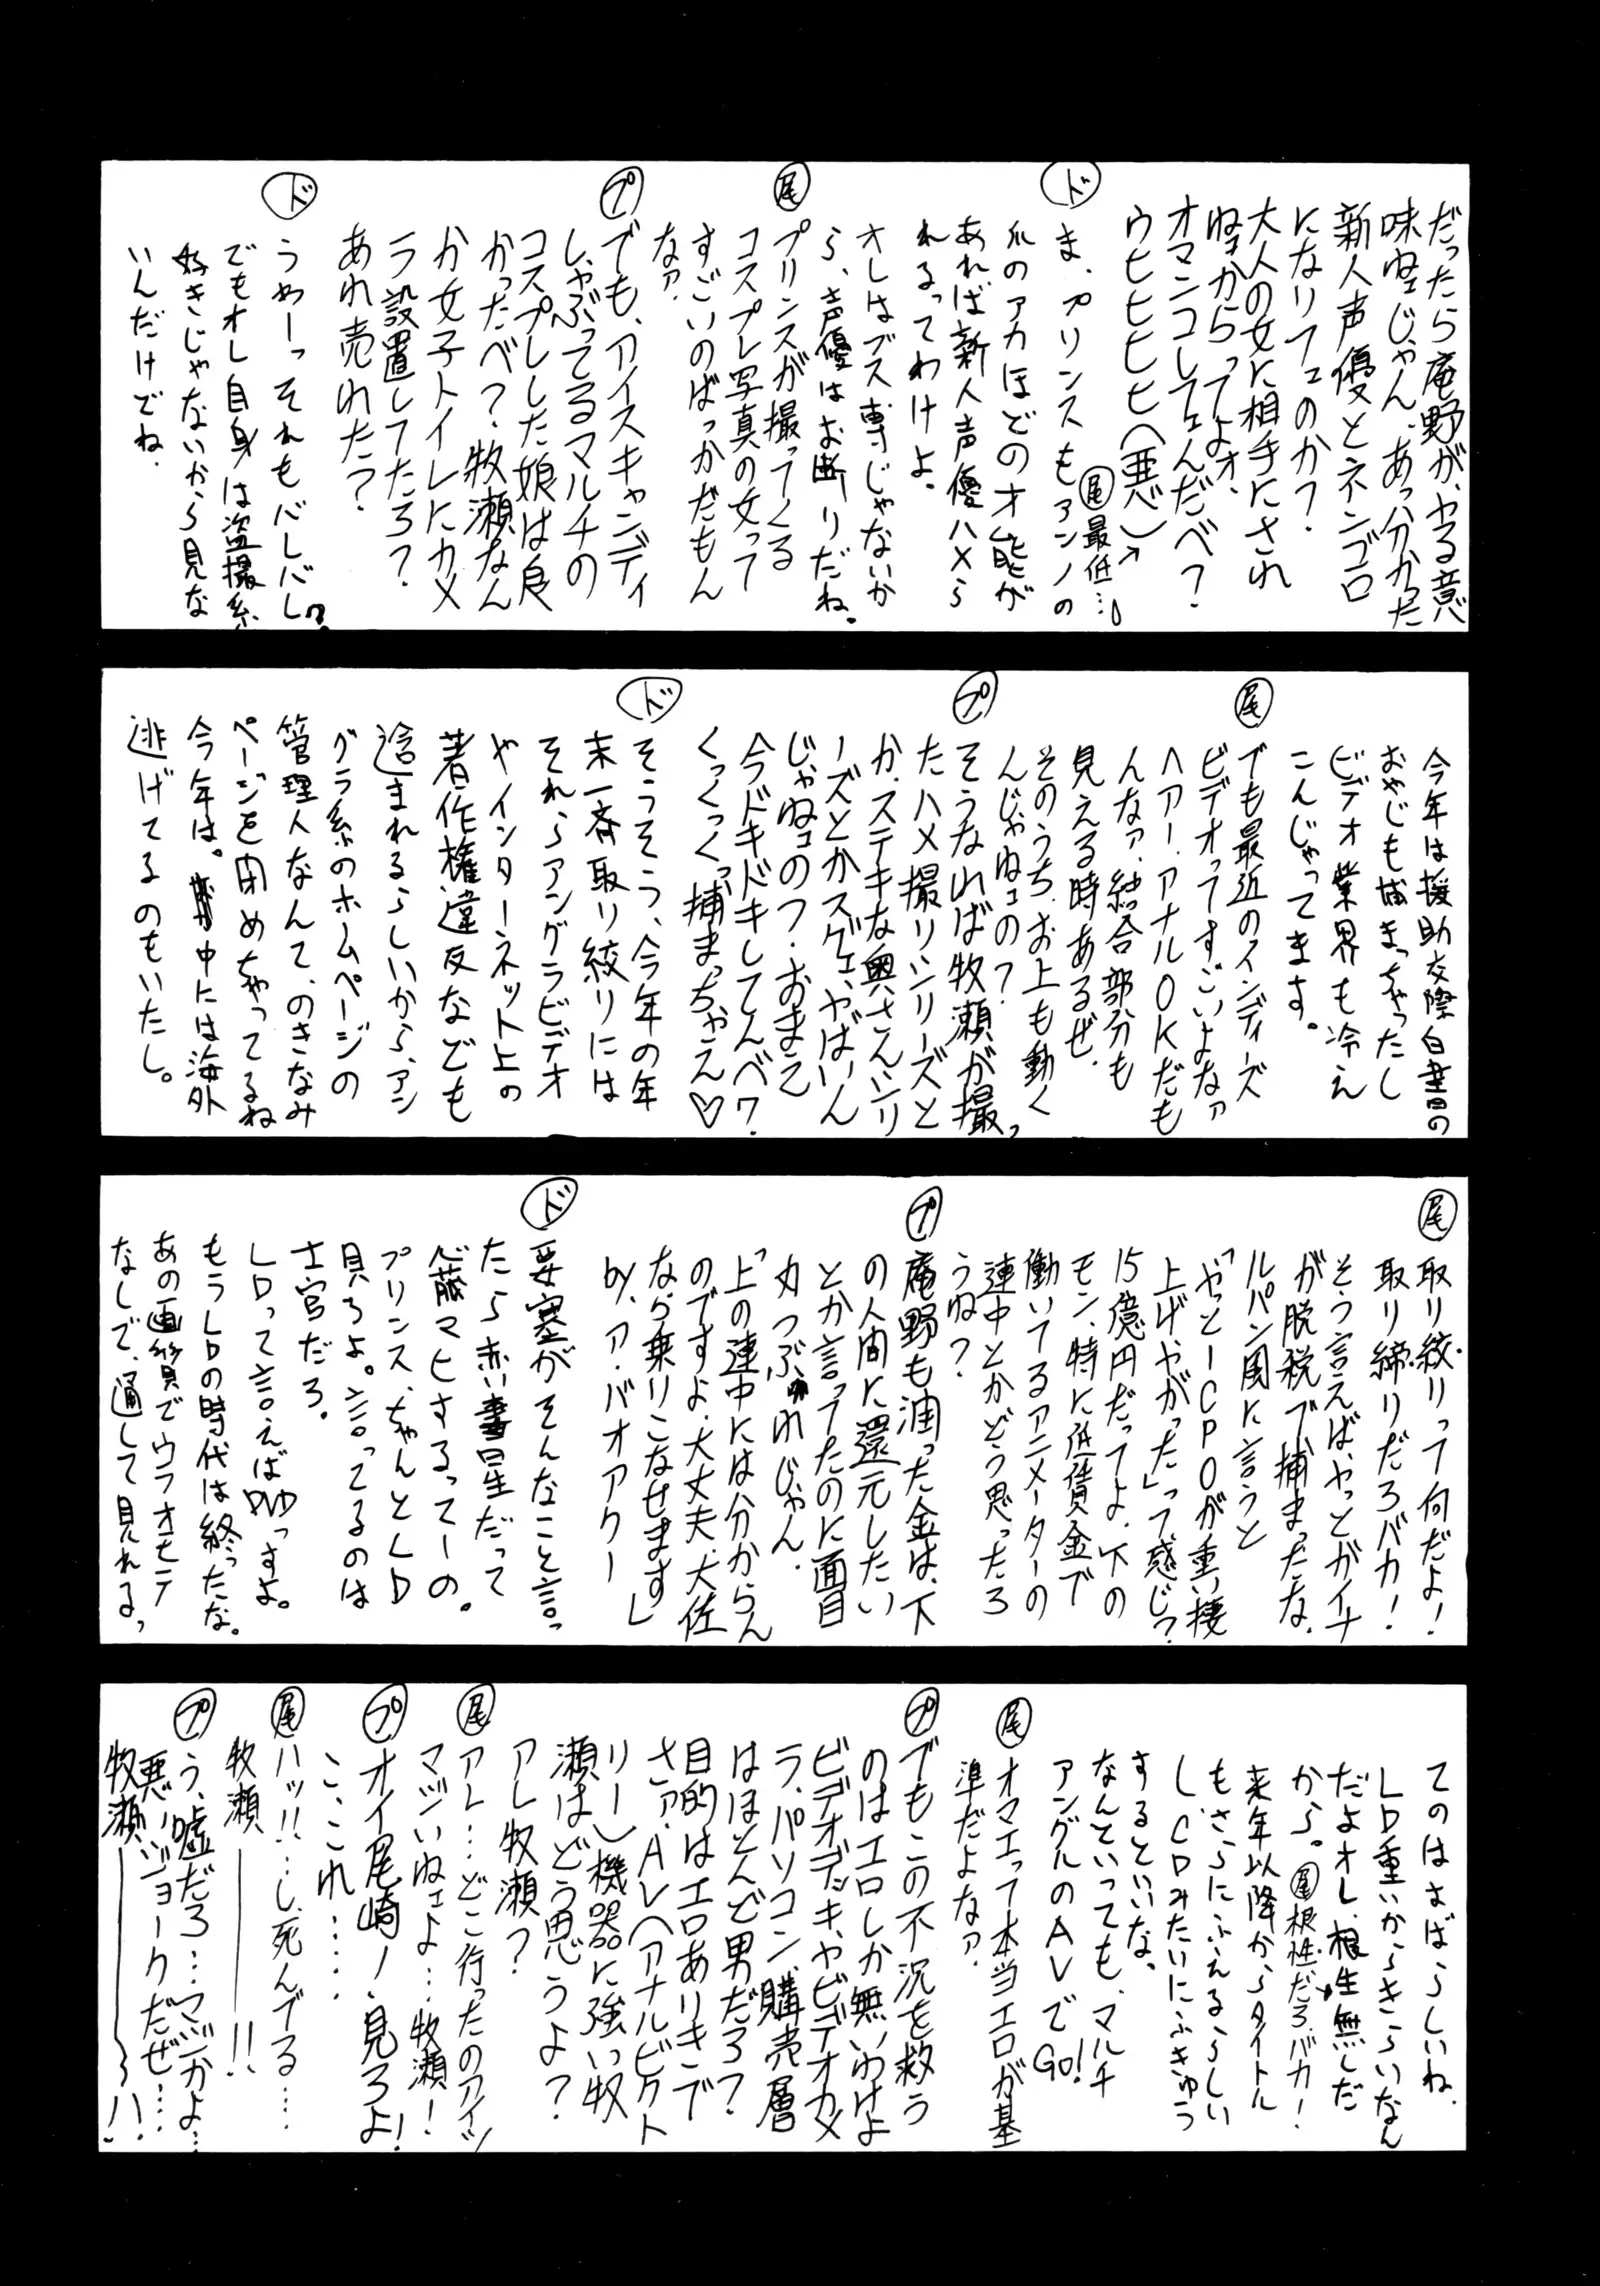 だったら庵野が、やる意
味ねェじゃん。あっ分かった
新人声優とネンゴロ
になりフェのか?
大人の女に相手にされ
ねェからってよォ、
オマンコしてェんだべ?
ウヒヒヒヒヒ(悪)
尾 最低…。
ド ま、プリンスもアンノの
爪のアカほどの才能が
あれば新人声優ハメら
れるってわけよ。
オレはブス専じゃないか
ら、声優はお断りだね。
尾 プリンスが撮ってくる
コスプレ写真の女って
すごいのばっかだもん
なァ。
プ でも、アイスキャンディ
しゃぶってるマルチの
コスプレした娘は良
かったべ?牧瀬なん
か女子トイレにカメ
ラ設置してたろ?
あれ売れた?
ド うわーっそれもバレバレ?
でもオレ自身は盗撮系
好きじゃないから見な
いんだけでね.
今年は援助交際白書の
おやじも捕まっちゃったし
ビデオ業界も冷え
こんじゃってます。
尾 でも最近のインディーズ
ビデオってすごいよなァ
ヘアー、アナルOKだも
んなァ、結合部分も
見える時あるぜ.
そのうち、お上も動く
んじゃねェの?
プ そうなれば牧瀬が撮っ
たハメ撮りシリーズと
か、ステキな奥さんシリ
ーズとかスゲェ、やばいん
じゃねェの?おまえ
今ドキドキしてんべ?
くっくっくっ捕まっちゃえ♡
ド そうそう、今年の年
末一斉取り絞りには
それらアングラビデオ
やインターネット上の
著作権違反なども
含まれるらしいから、アン
グラ系のホームページの
管理人なんて、のきなみ
ページを閉めちゃってるね
今年は。中には海外
逃げてるのもいたし。
尾 取り絞りって何だよ!
取り締りだろバカ!
そう言えば、やっとガイナ
が脱税で捕まったな.
ルパン風に言うと
「やっとーCPOが重い棲
上げやがった」って感じ?
15億円だってよ、下の
モン、特に低賃金で
働いてるアニメーターの
連中とかどう思ったろ
うね?
プ 庵野も浦った金は、下
の人間に還元したい
とか言ってたのに面目
丸つぶれじゃん.
「上の連中には分からん
のですよ.大丈夫、大佐
なら乗りこなせます」
by.ア・バオアクー
ド 要塞がそんなこと言っ
たら赤い彗星だって
心藤マヒするってーの。
プリンス、ちゃんとLD
見ろよ。言ってるのは
士官だろ。
LDって言えばDVDっすよ。
もうLDの時代は終ったな。
あの画質でウラオモテ
なしで、通して見れるっ
てのはすばらしいね.
LD重いからきらいなん
だよオレ.根生無しだ
から。尾 根性だろ.バカ!
来年以降からタイトル
もさらにふえるらしい
し、CDみたいにふきゅう
するといいな。
なんていっても、マルチ
アングルのAVでGO!
尾 オマエって本当エロが基
準だよなァ?
プ でもこの不況を救う
のはエロしか無いわけよ
ビデオデッキ、やビデオカメ
ラ、パソコン、購売層
はほとんど男だろ?
目的はエロありきで
さァ.AV(アナルビクト
リー)機器に強い牧
瀬はどう思うよ?
アレ牧瀬?
尾 アレ…どこ行ったのアイツ
マズいねェよ…牧瀬!
プ オイ尾崎!見ろよ!
こ、これ……
尾 ハッ!!…し、死んでる…
牧瀬――――!!
プ う、嘘だろ…マジかよ…
悪いジョークだぜ……
牧瀬――――〜ハ!